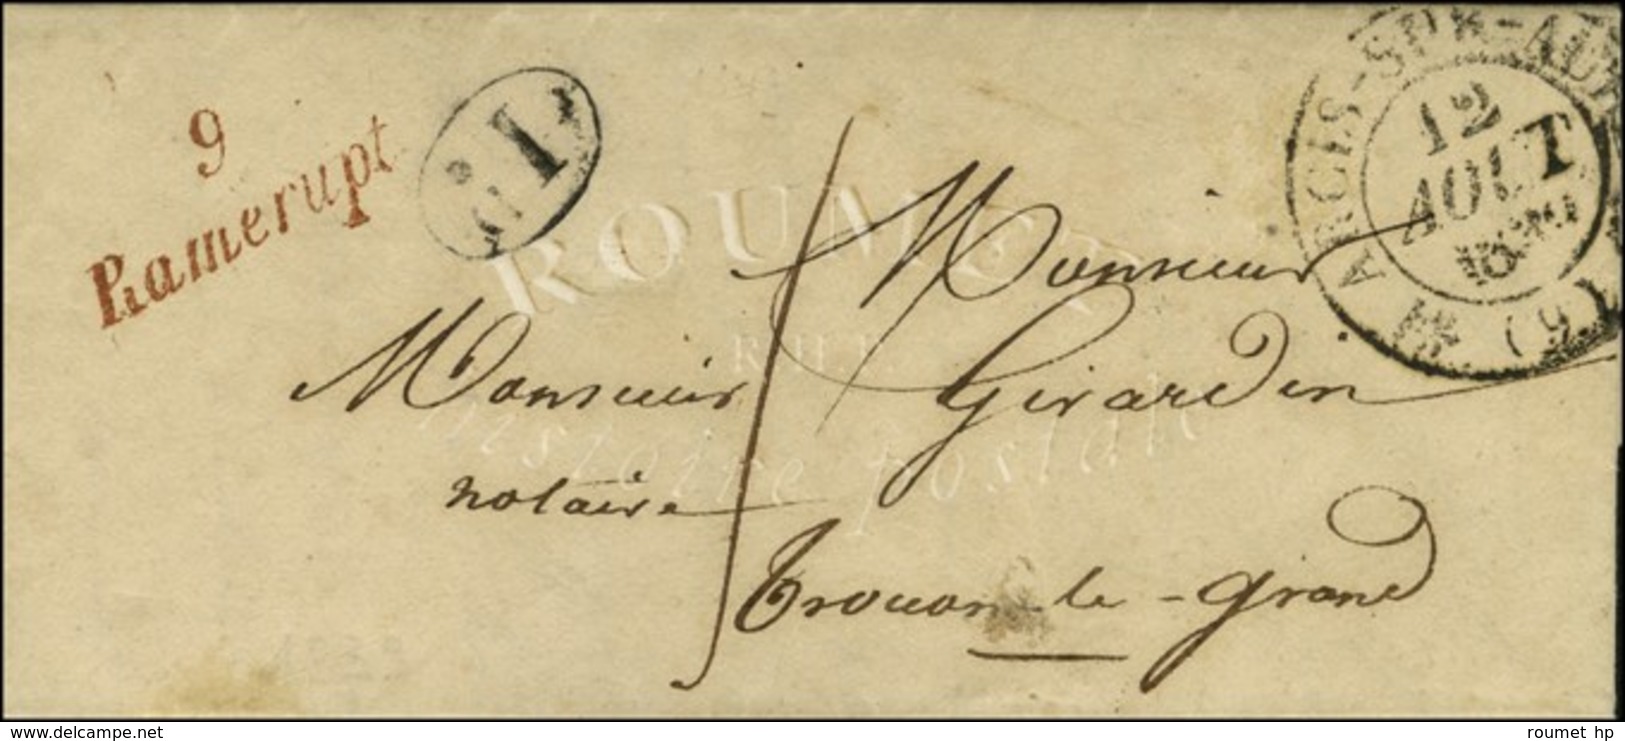 9
Ramerupt
ARCIS-SUR-AUBE (9)
12
AOUT
Monsieur
Monsieur Girardin
notaire
Trouan-le-grand
ROUMET
Histoire postale
delcampe.net
roumet hp